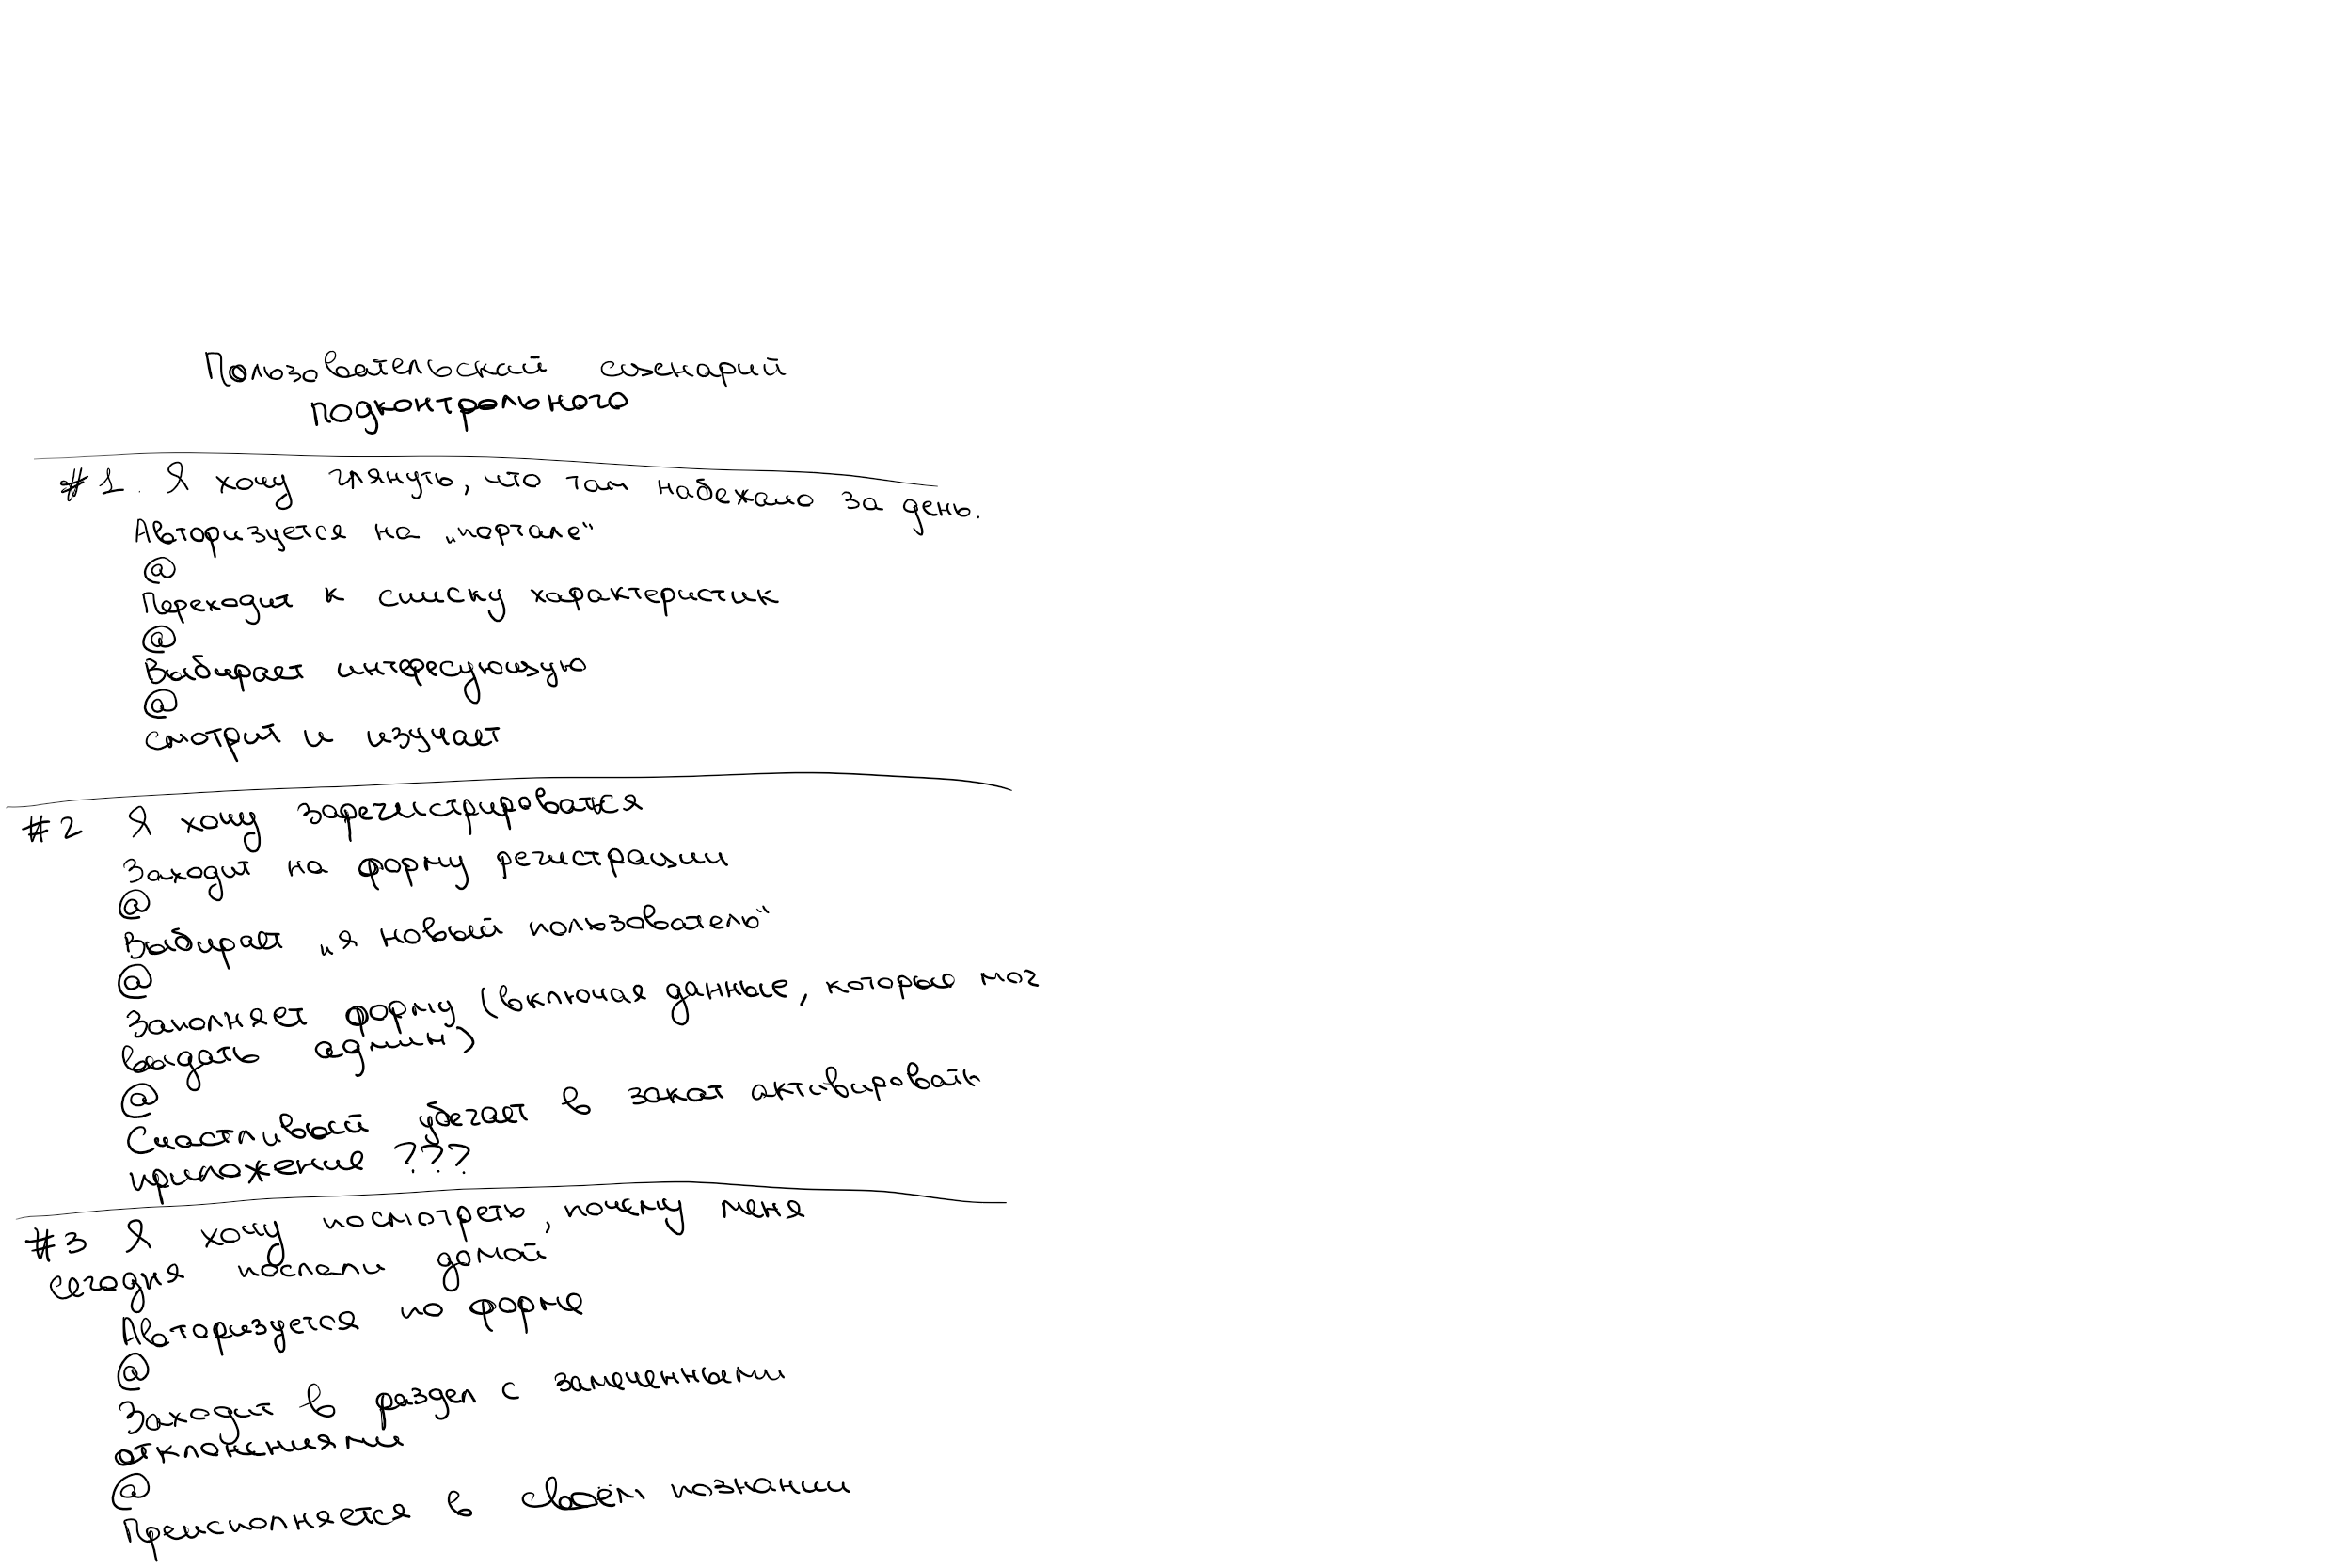 Пользовательский сценарий
подконтрольного
#1. Я хочу глянуть, что там набежало за день.
Авторизуется на „портале“
@
Переходит к списку характеристик
@
Выбирает интересующую
@
смотрит и изучает
#2 Я хочу зарегистрироваться
Заходит на форму регистрации
@
Выбирает „я новый пользователь“
@
Заполняет форму (включая данные, которые мог
выдать админ)
@
Счастливый убегает в закат активировать
приложение ???
#3 Я хочу посмотреть, почему меня
сегодня послали домой
Авторизуется по форме
@
Заходит в раздел с замеченными
отклонениями
@
Преисполняется в своём познании